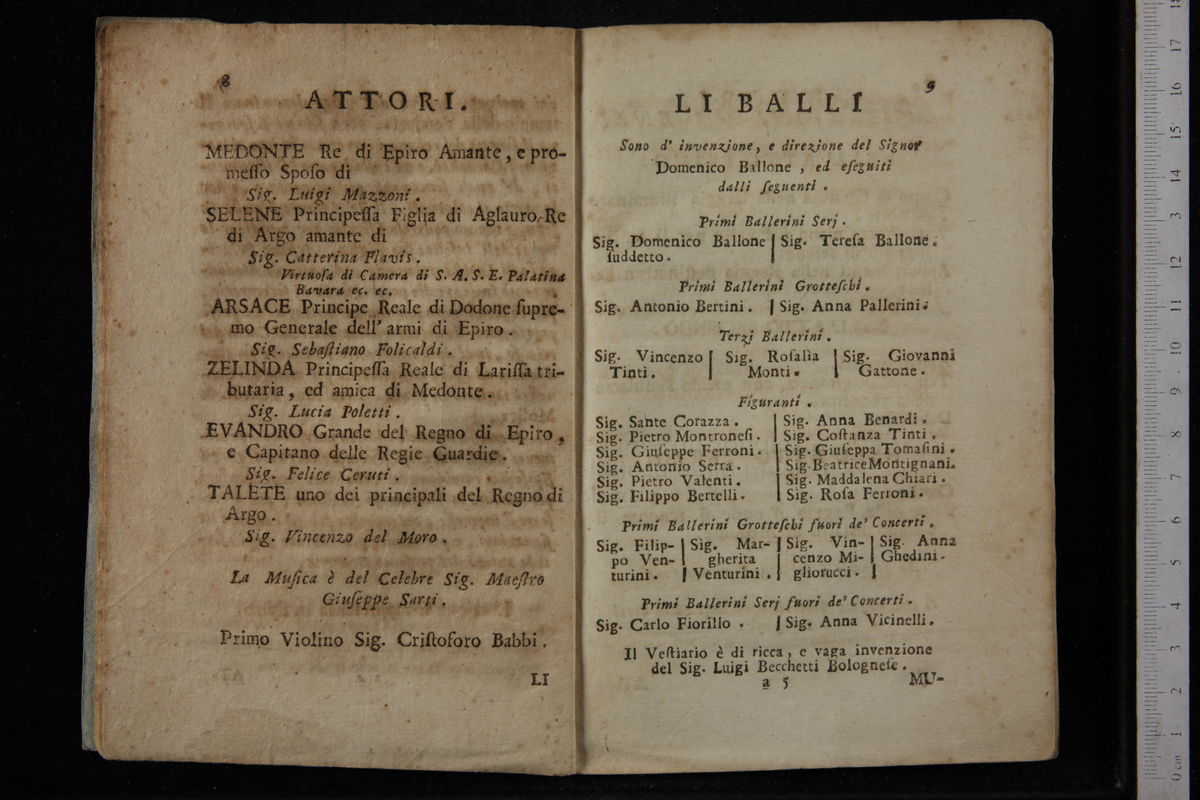 8
ATTORI.
MEDONTE Re di Epiro Amante, e pro-
meſſo Spoſo di
Sig. Luigi Mazzoni.
SELENE Principeſſa Figlia di Aglauro Re
di Argo amante di
Sig. Catterina Flavis.
Virtuoſa di Camera di S. A. S. E. Palatina
Bavara ec. ec.
ARSACE Principe Reale di Dodone ſupre-
mo Generale dell' armi di Epiro.
Sig. Sebaſtiano Folicaldi.
ZELINDA Principeſſa Reale di Lariſſa tri-
butaria, ed amica di Medonte.
Sig. Lucia Poletti.
EVANDRO Grande del Regno di Epiro,
e Capitano delle Regie Guardie.
Sig. Felice Ceruti.
TALETE uno dei principali del Regno di
Argo.
Sig. Vincenzo del Moro.
La Muſica è del Celebre Sig. Maeſtro
Giuſeppe Sarti.
Primo Violino Sig. Criſtoforo Babbi.
LI
9
LI BALLI
Sono d' invenzione, e direzione del Signor
Domenico Ballone, ed eſeguiti
dalli ſeguenti.
Primi Ballerini Serj.
Sig. Domenico Ballone | Sig. Tereſa Ballone.
ſuddetto.
Primi Ballerini Grotteſchi.
Sig. Antonio Bertini. | Sig. Anna Pallerini.
Terzi Ballerini.
Sig. Vincenzo | Sig. Roſalìa | Sig. Giovanni
Tinti. | Monti. | Gattone.
Figuranti.
Sig. Sante Corazza. | Sig. Anna Benardi.
Sig. Pietro Montroneſi. | Sig. Coſtanza Tinti.
Sig. Giuſeppe Ferroni. | Sig. Giuſeppa Tomaſini.
Sig. Antonio Serra. | Sig. Beatrice Montignani.
Sig. Pietro Valenti. | Sig. Maddalena Chiari.
Sig. Filippo Bertelli. | Sig. Roſa Ferroni.
Primi Ballerini Grotteſchi fuori de' Concerti.
Sig. Filip- | Sig. Mar- | Sig. Vin- | Sig. Anna
po Ven- | gherita | cenzo Mi- | Ghedini.
turini. | Venturini. | gliorucci. |
Primi Ballerini Serj fuori de' Concerti.
Sig. Carlo Fiorillo. | Sig. Anna Vicinelli.
Il Veſtiario è di ricca, e vaga invenzione
del Sig. Luigi Becchetti Bologneſe.
a 5
MU-
0 cm 1 2 3 4 5 6 7 8 9 10 11 12 13 14 15 16 17 18